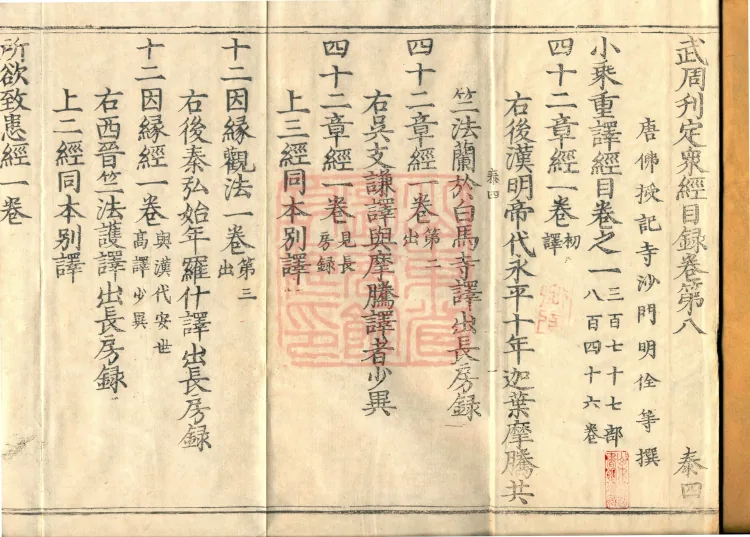 武周刊定衆經目録卷第八 秦四
唐佛授記寺沙門明佺等撰
小乘重譯經目卷之一 三百七十七部
八百四十六卷
四十二章經一卷 初
譯
右後漢明帝代永平十年迦葉摩騰共
秦四
竺法蘭於白馬寺譯出長房録
四十二章經一卷 第二
出
右吳支謙譯與摩騰譯者少異
四十二章經一卷 見長
房録
上三經同本別譯
十二因緣觀法一卷 第三
出
右後秦弘始年羅什譯出長房録
十二因緣經一卷 與漢代安世
高譯少異
右西晉竺法護譯出長房録
上二經同本別譯
所欲致患經一卷